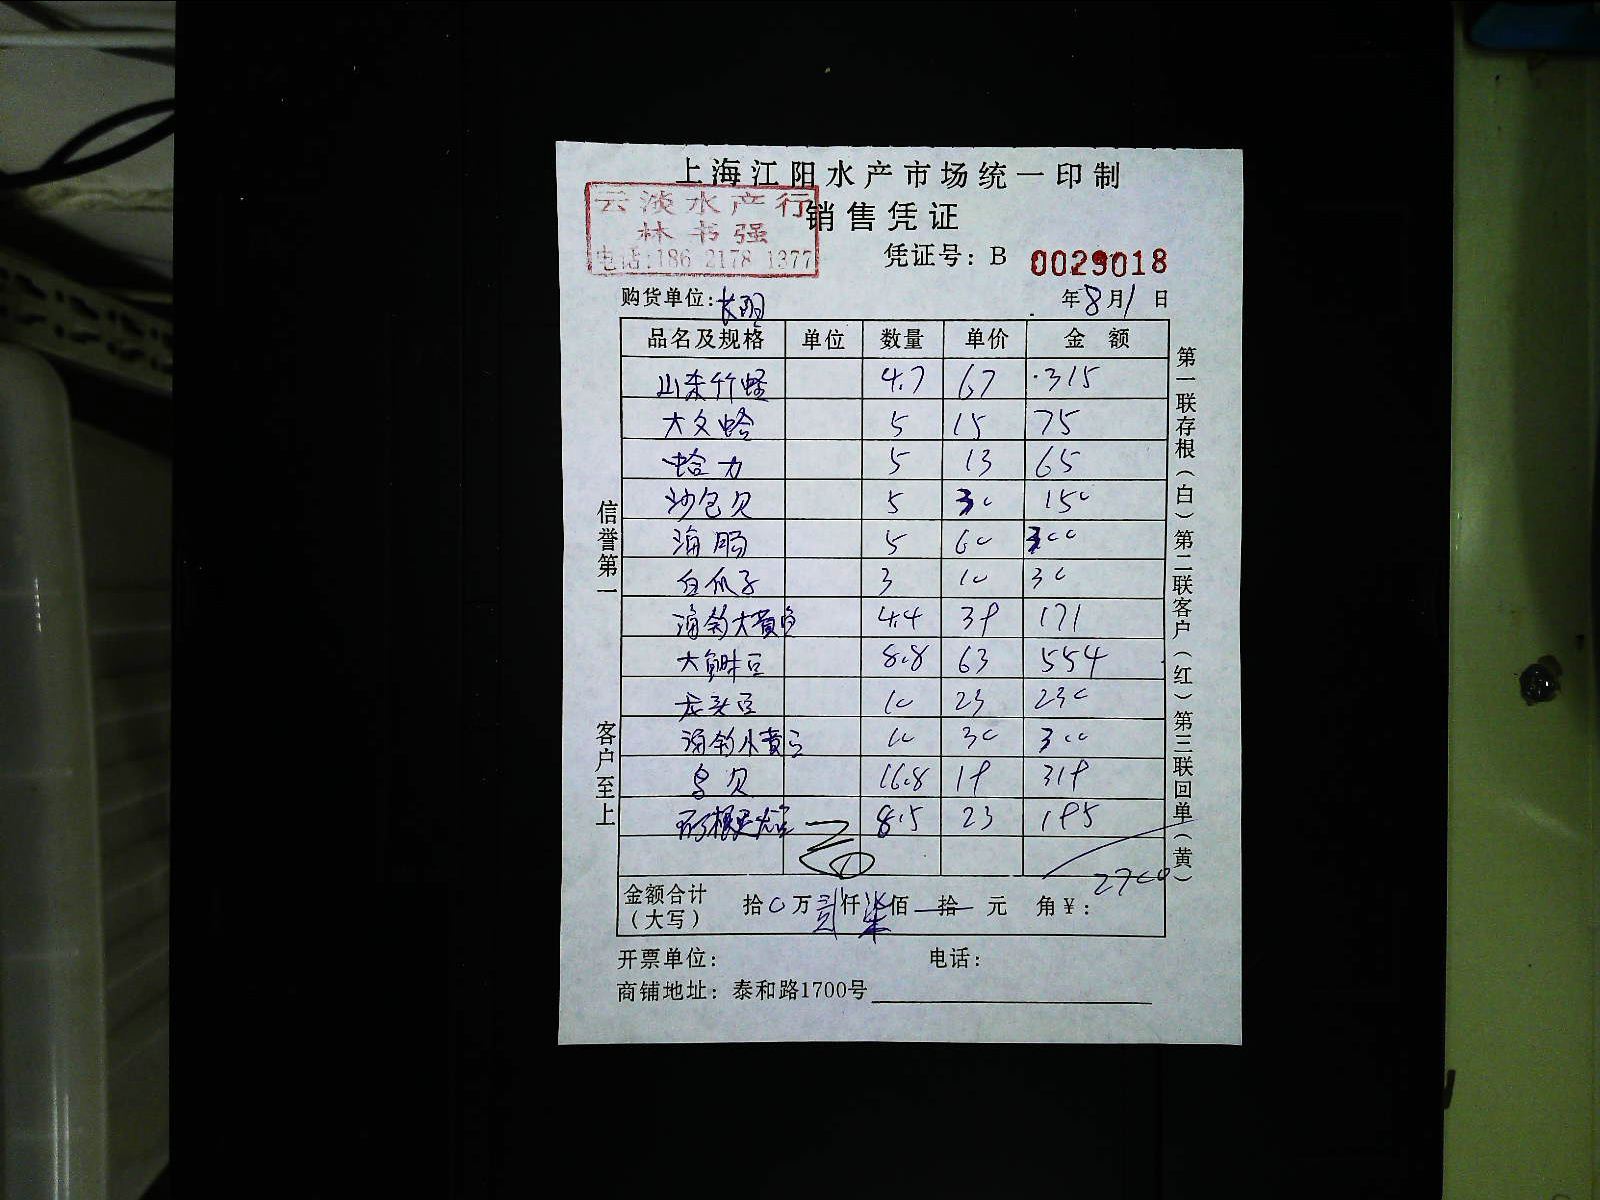 上海江阳水产市场统一印制
云淡水产行
销售凭证
林书强
电话:186 2178 1377
凭证号: B 0029018
购货单位:
年8月1日
品名及规格 单位 数量 单价 金额
山东竹蛏 4.7 67 315
大文蛤 5 15 75
蛤力 5 13 65
沙包贝 5 30 150
海肠 5 60 300
白爪子 3 10 30
海钓大黄鱼 4.4 39 171
8.8 63 554
龙头 10 23 230
海钓小黄 10 30 300
鸟贝 16.8 19 319
8.5 23 195
2700
金额合计
(大写) 拾0万贰仟柒佰 拾 元 角¥:
开票单位: 电话:
商铺地址: 泰和路1700号
信誉第一
客户至上
第一联存根(白)第二联客户(红)第三联回单(黄)